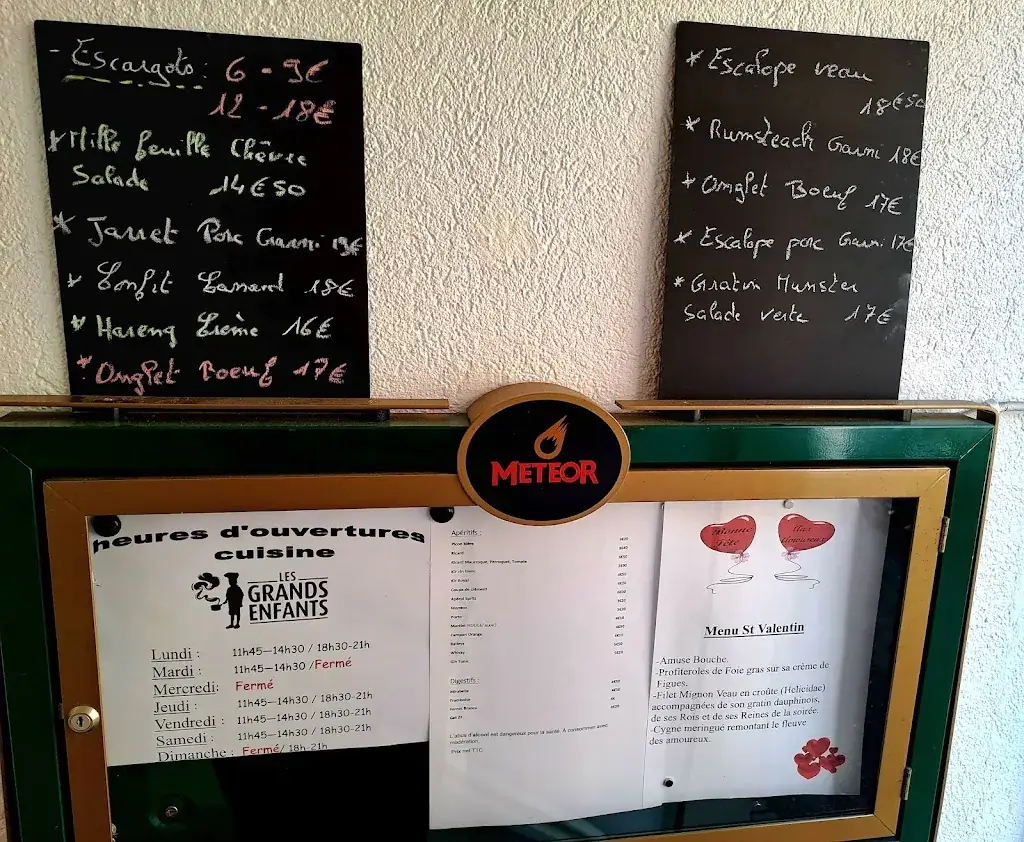 - Escargots : 6 - 9€
12 - 18€
* Mille feuille Chèvre
Salade 14€50
* Jarret Porc Garni 19€
* Confit Canard 18€
* Hareng Crème 16€
* Onglet Boeuf 17€
* Escalope veau
18€50
* Rumsteack Garni 18€
* Onglet Boeuf 17€
* Escalope porc Garni 17€
* Gratin Munster
Salade verte 17€
METEOR
heures d'ouvertures
cuisine
LES
GRANDS
ENFANTS
Lundi : 11h45—14h30 / 18h30-21h
Mardi : 11h45—14h30 /Fermé
Mercredi: Fermé
Jeudi : 11h45—14h30 / 18h30-21h
Vendredi : 11h45—14h30 / 18h30-21h
Samedi : 11h45—14h30 / 18h30-21h
Dimanche : Fermé/ 18h-21h
Apéritifs :
Picon bière
Ricard
Ricard Mauresque, Perroquet, Tomate
Kir vin blanc
Kir Royal
Coupe de crémant
Apérol Spritz
Porto
Martini
Campari Orange
Baileys
Whisky
Gin Tonic
Digestifs :
Mirabelle
Framboise
Fernet Branca
Get 27
L'abus d'alcool est dangereux pour la santé. A consommer avec
modération.
Prix net TTC
Bonne
Fête
Les
Amoureux
Menu St Valentin
-Amuse Bouche.
-Profiteroles de Foie gras sur sa crème de
Figues.
-Filet Mignon Veau en croûte (Helicidae)
accompagnées de son gratin dauphinois,
de ses Rois et de ses Reines de la soirée.
-Cygne meringué remontant le fleuve
des amoureux.